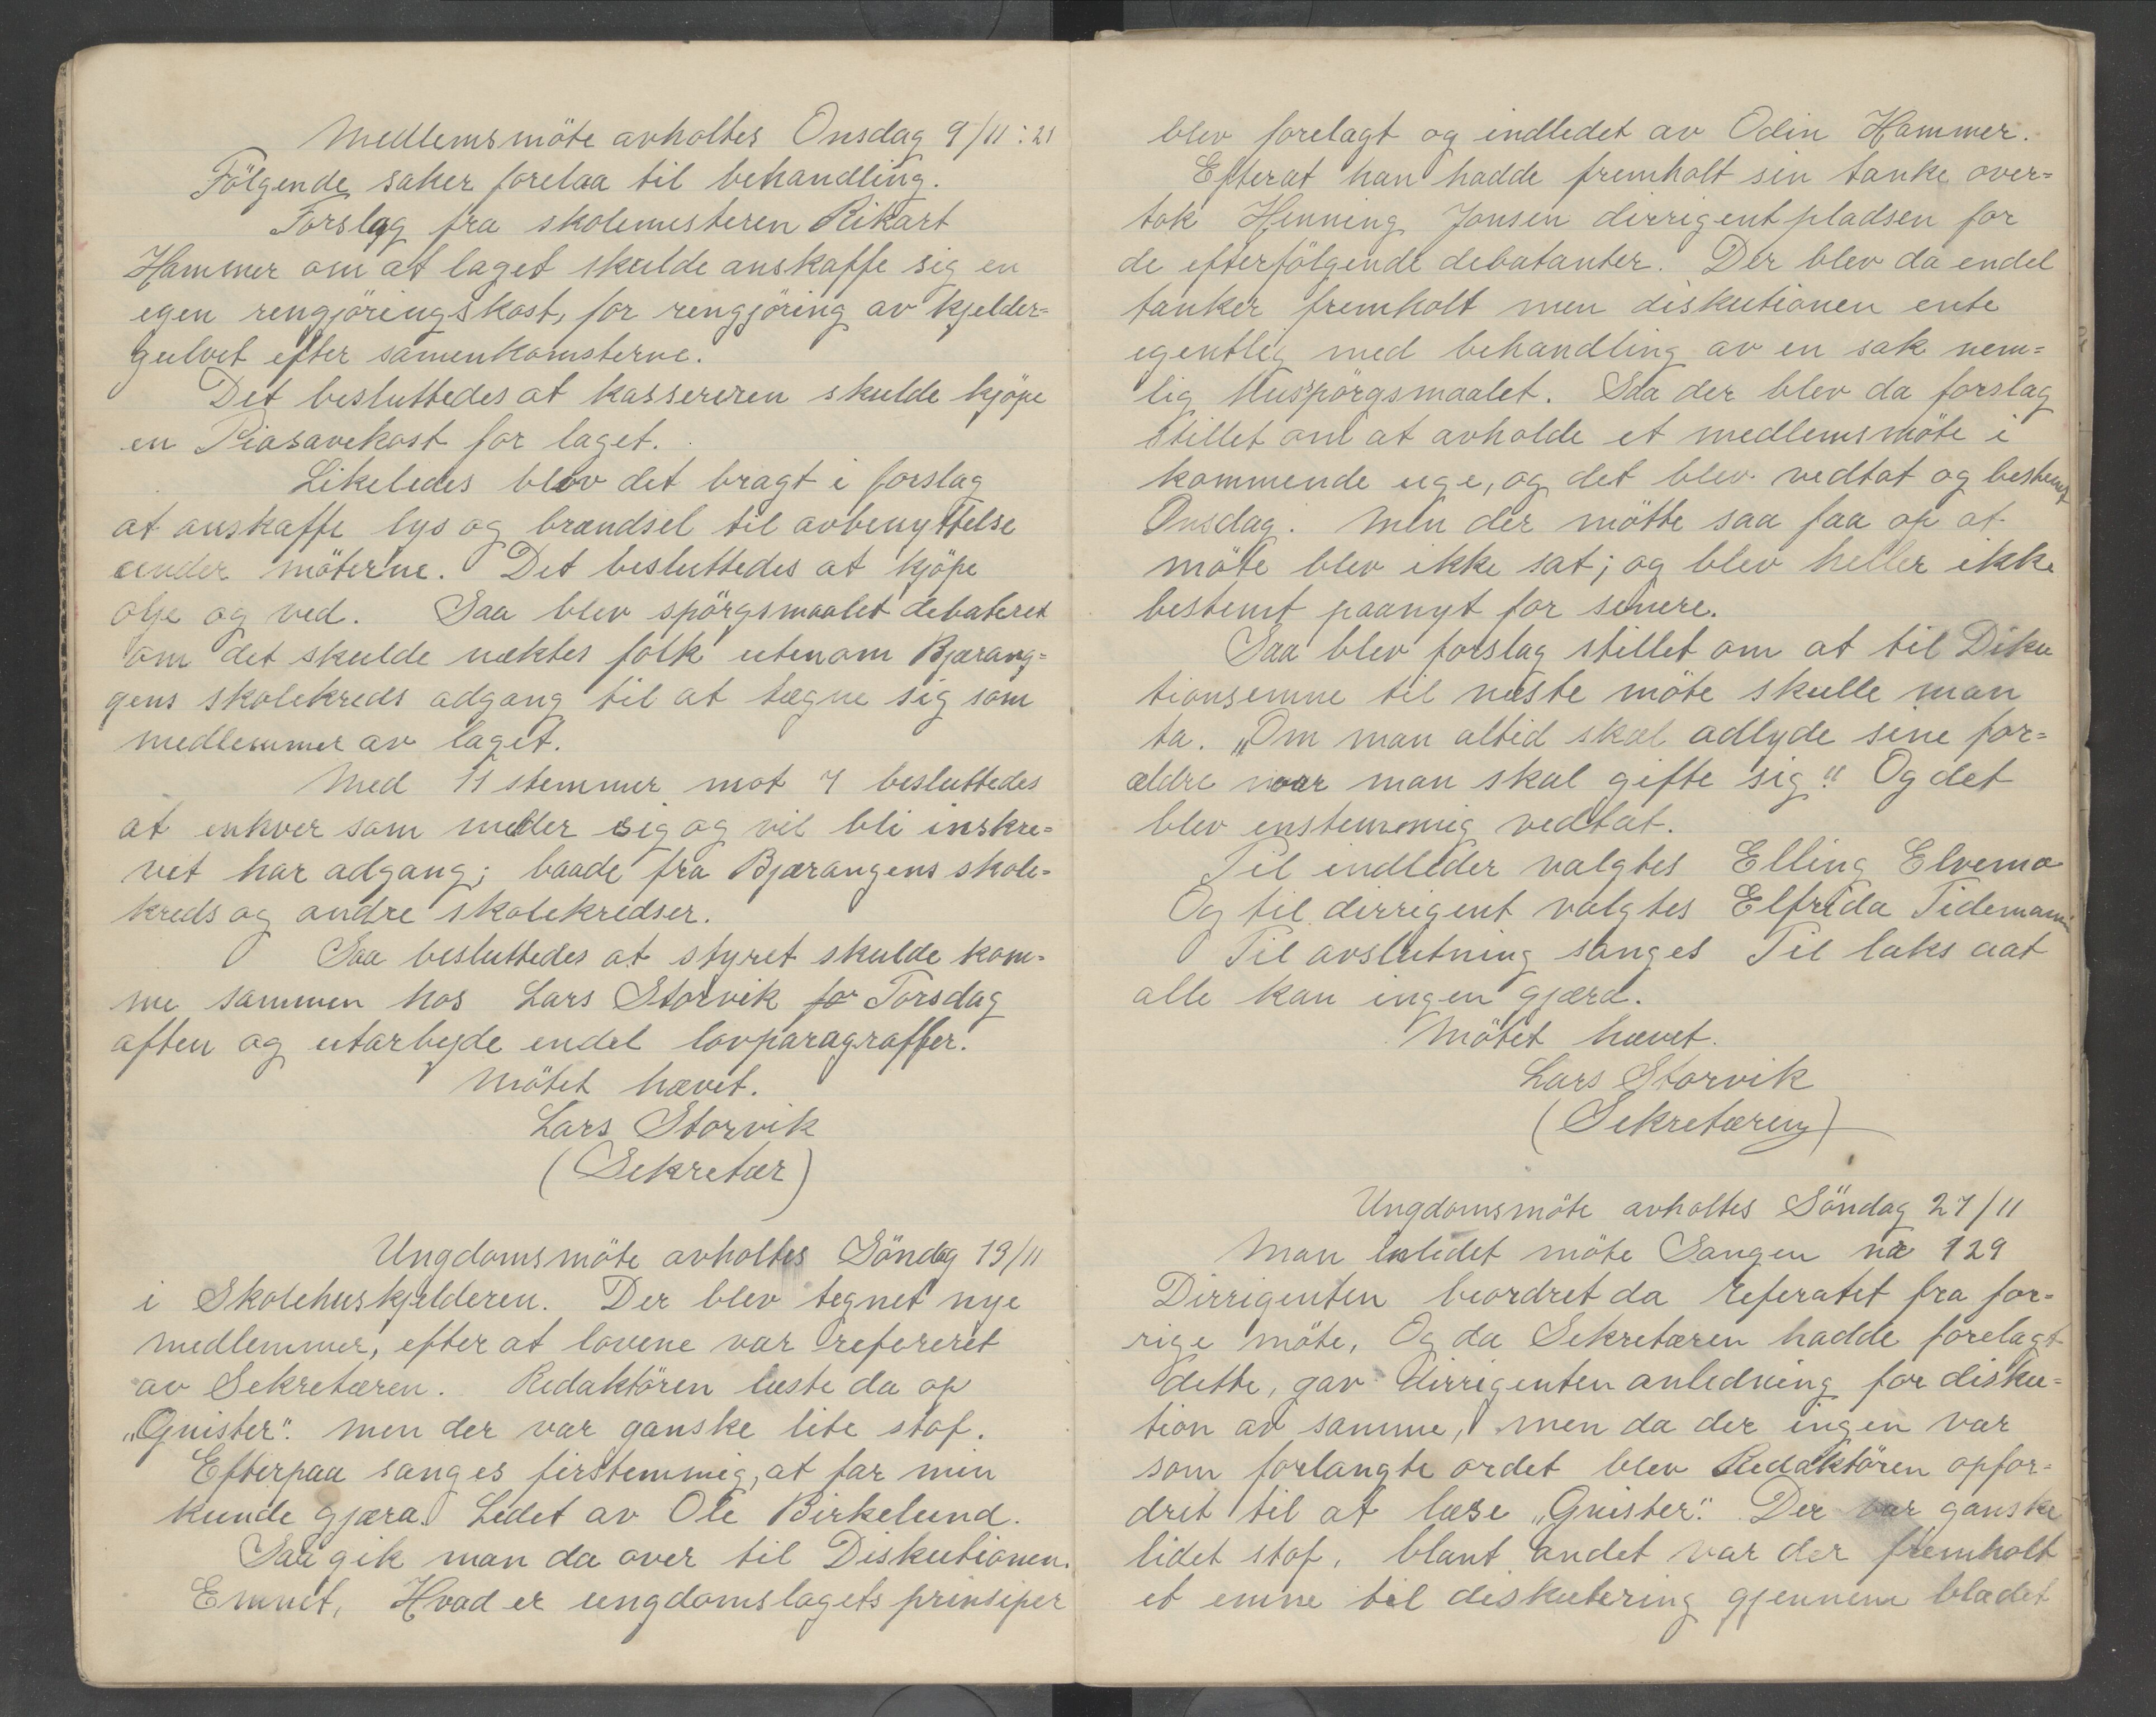 Medlemsmöte avholtes Onsdag 9/11: 21
Fölgende saker forelaa til behandling.
Forslag fra skolemesteren Rikart
Hammer om at laget skulde anskaffe sig en
egen rengjöringskost, for rengjöring av kjelder=
gulvet efter samenkomsterne.
Det besluttedes at kassereren skulde kjöpe
en Piasavekost for laget.
Likeledes blev det bragt i forslag
at anskaffe lys og brændsel til avbenyttelse
under möterne. Det besluttedes at kjöpe
olje og ved. Saa blev spörgsmaalet debateret
om det skulde nektes folk utenom Bjærang=
gens skolekreds adgang til at tægne sig som
medlemmer av laget.
Med 11 stemmer mot 7 besluttedes
at enhver som melder sig og vil bli inskre=
vet har adgang; baade fra Bjærangens skole=
kreds og andre skolekredser.
Saa besluttedes at styret skulde kom=
me sammen hos Lars Storvik Torsdag
aften og utarbejde endel lovparagraffer.
Mötet hævet.
Lars Storvik
(Sekretær)
Ungdomsmöte avholtes Söndag 13/11
i Skolehuskjelderen. Der blev tegnet nye
medlemmer, efter at lovene var refereret
av Sekretæren. Redaktören læste da op
„Gnister". Men der var ganske lite stof.
Efterpaa sanges firstemmig, at far min
kunde gjæra. Ledet av Ole Birkelund.
Saa gik man da over til Diskutionen.
Emnet, Hvad er ungdomslagets prinsiper
blev forelagt og indledet av Odin Hammer.
Efterat han hadde fremholt sin tanke over=
tok Henning Jonsen dirrigentpladsen for
de efterfölgende debatanter. Der blev da endel
tanker fremholt men diskutionen ente
egentlig med behandling av en sak nem=
lig Huspörgsmaalet. Saa der blev da forslag
stillet om at avholde et medlemsmöte i
kommende uge, og det blev vedtat og bestemt
Onsdag. Men der mötte saa faa op at
möte blev ikke sat; og blev heller ikke
bestemt paanyt for senere.
Saa blev forslag stillet om at til Disku
tionsemne til næste möte skulle man
ta. „Om man altid skal adlyde sine for=
ældre naar man skal gifte sig". Og det
blev enstemmig vedtat.
Til indleder valgtes Elling Elvemo
Og til dirrigent valgtes Elfrida Tidemann
Til avslutning sanges Til laks aat
alle kan ingen gjærd.
Mötet hævet.
Lars Storvik
(Sekretæren)
Ungdomsmöte avholtes Söndag 27/11
Man inledet möte Sangen nr 129
Dirrigenten beordret da referatet fra for=
rige möte, Og da Sekretæren hadde forelagt
dette, gav Dirrigenten anledning for disku=
tion av samme, men da der ingen var
som forlangte ordet blev Redaktören opfor=
dret til at læse „Gnister". Der var ganske
lidet stof, blant andet var der fremholt
et emne til diskutering gjennem bladet